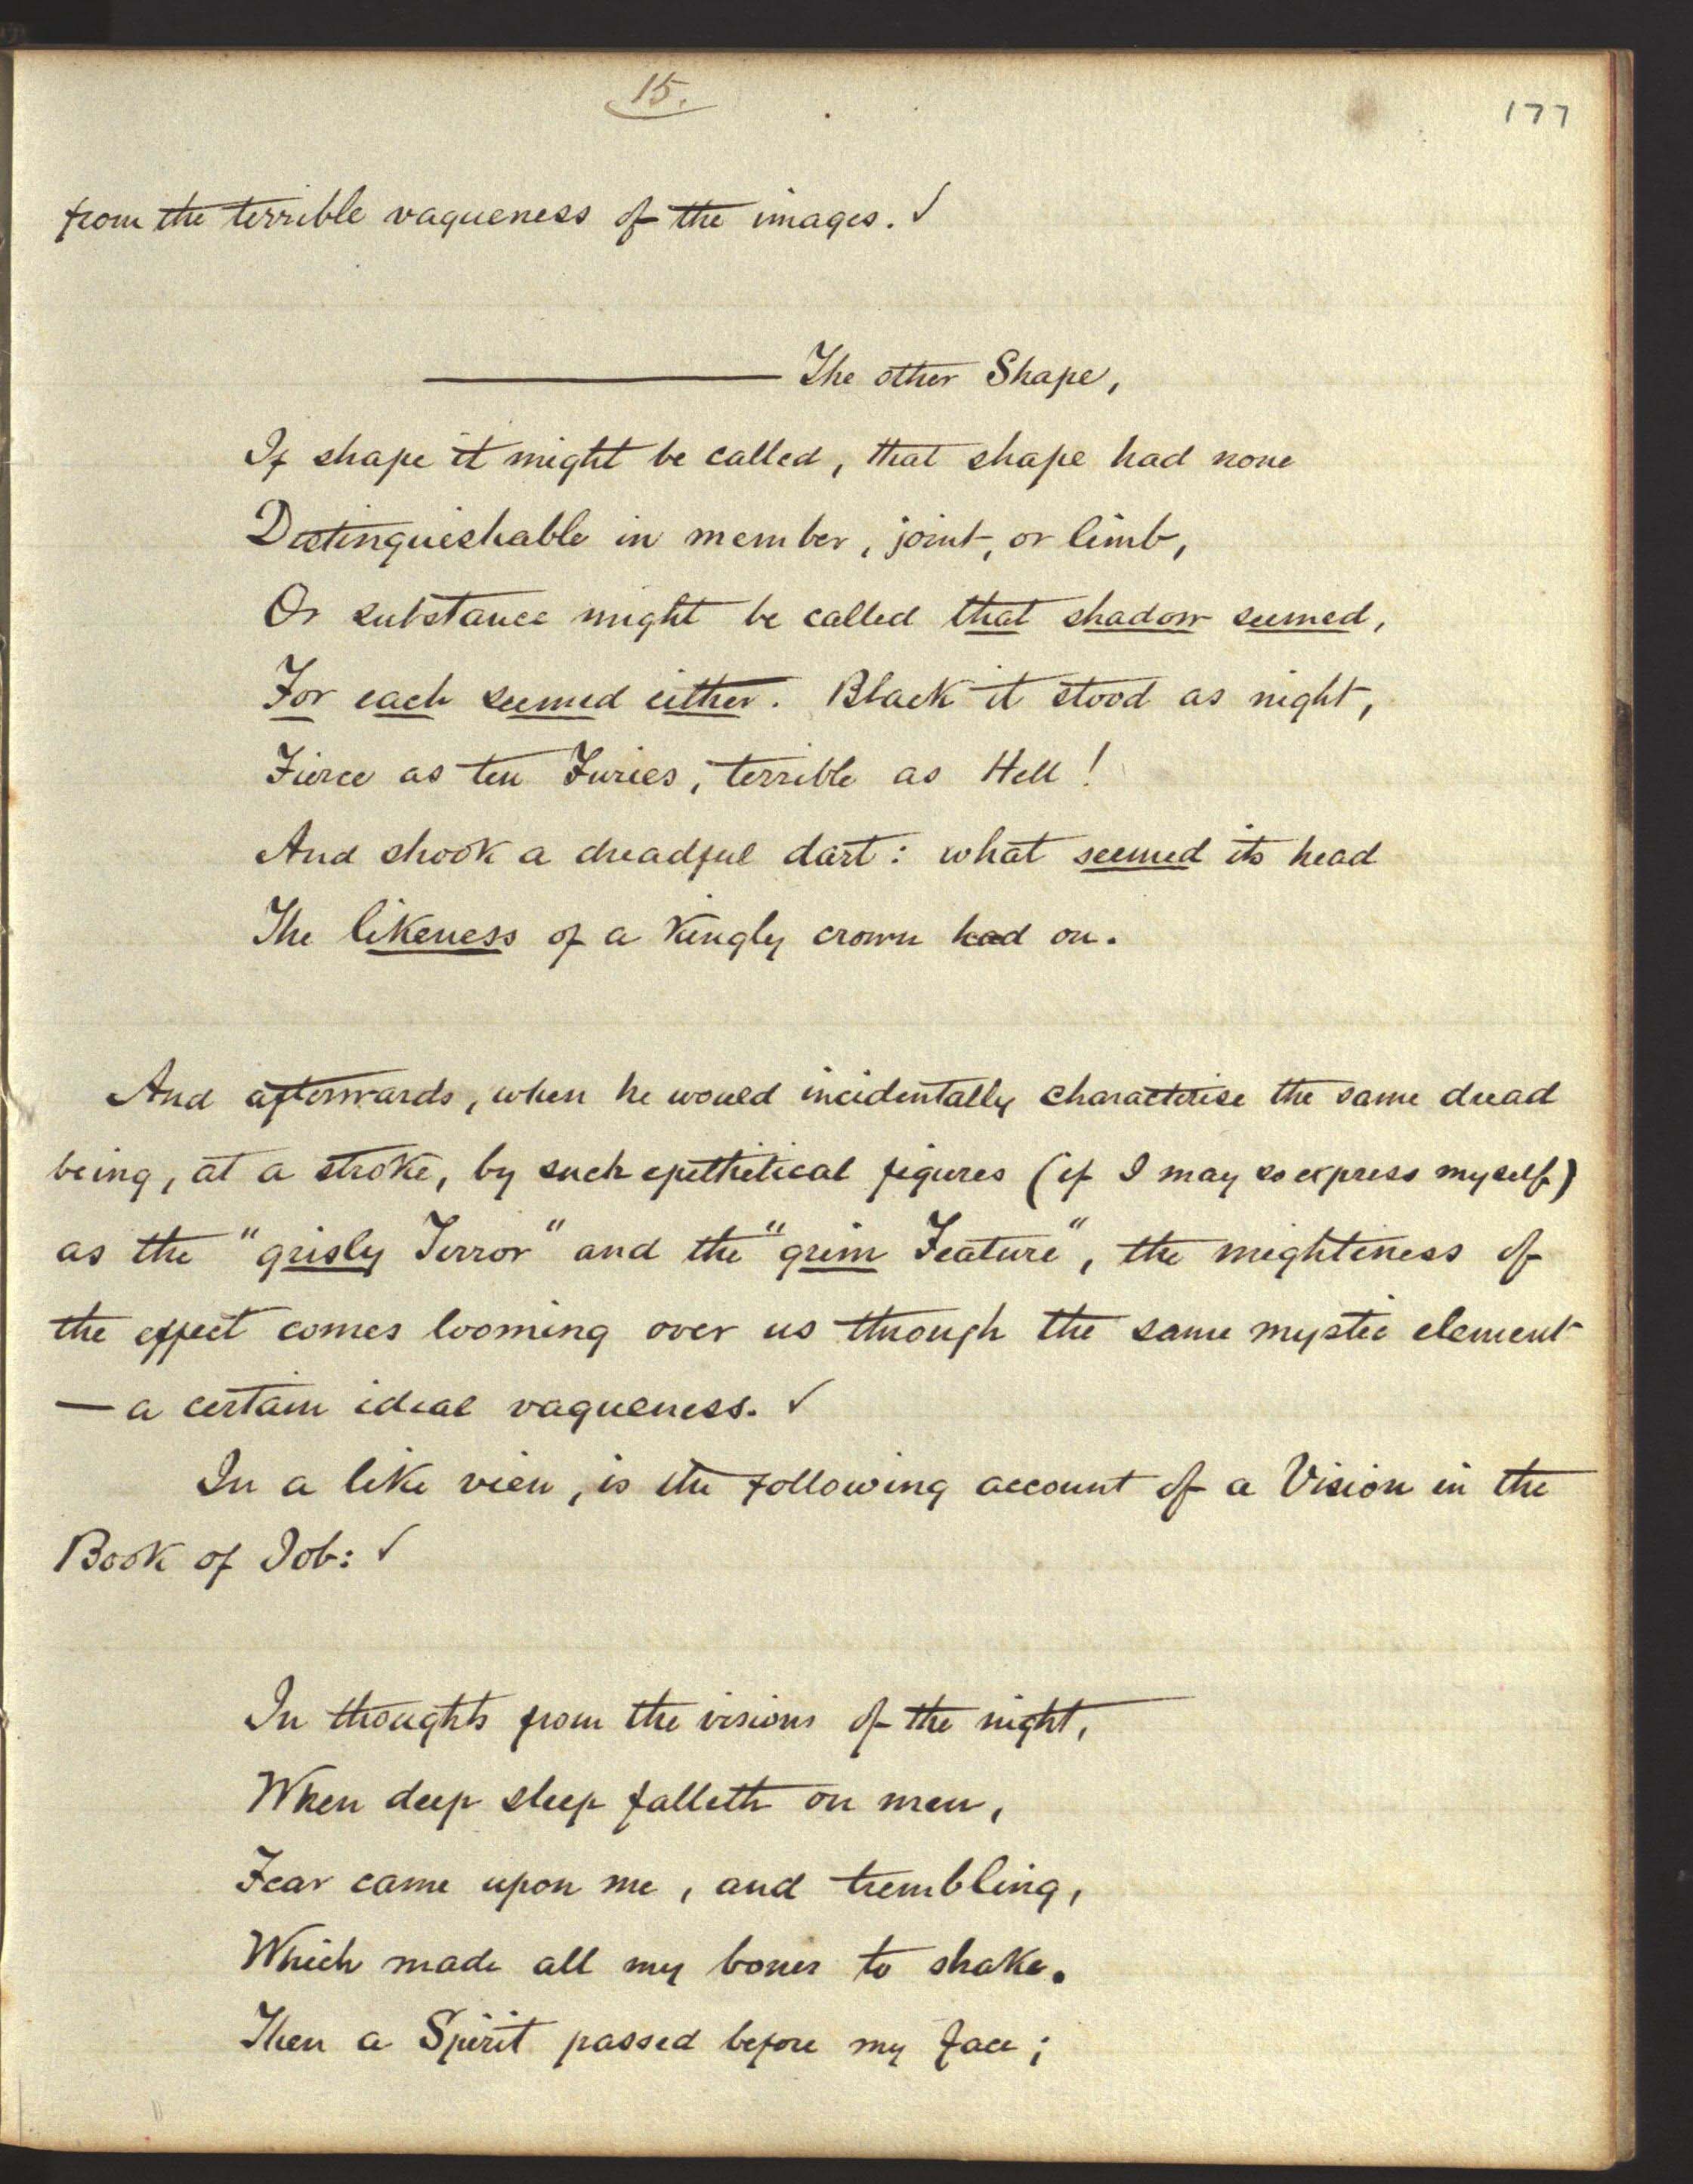 15.
177
from the terrible vagueness of the images. ✓
——— The other Shape,
If shape it might be called, that shape had none
Distinguishable in member, joint, or limb,
Or substance might be called that shadow seemed,
For each seemed either. Black it stood as night,
Fierce as ten Furies, terrible as Hell!
And shook a dreadful dart: what seemed its head
The likeness of a kingly crown had on.
And afterwards, when he would incidentally characterise the same dread
being, at a stroke, by such epithetical figures (if I may so express myself)
as the "grisly Terror" and the "grim Feature", the mightiness of
the effect comes looming over us through the same mystic element
— a certain ideal vagueness. ✓
In a like vien, is the following account of a Vision in the
Book of Job: ✓
In thoughts from the visions of the night,
When deep sleep falleth on men,
Fear came upon me, and trembling,
Which made all my bones to shake.
Then a Spirit passed before my face;